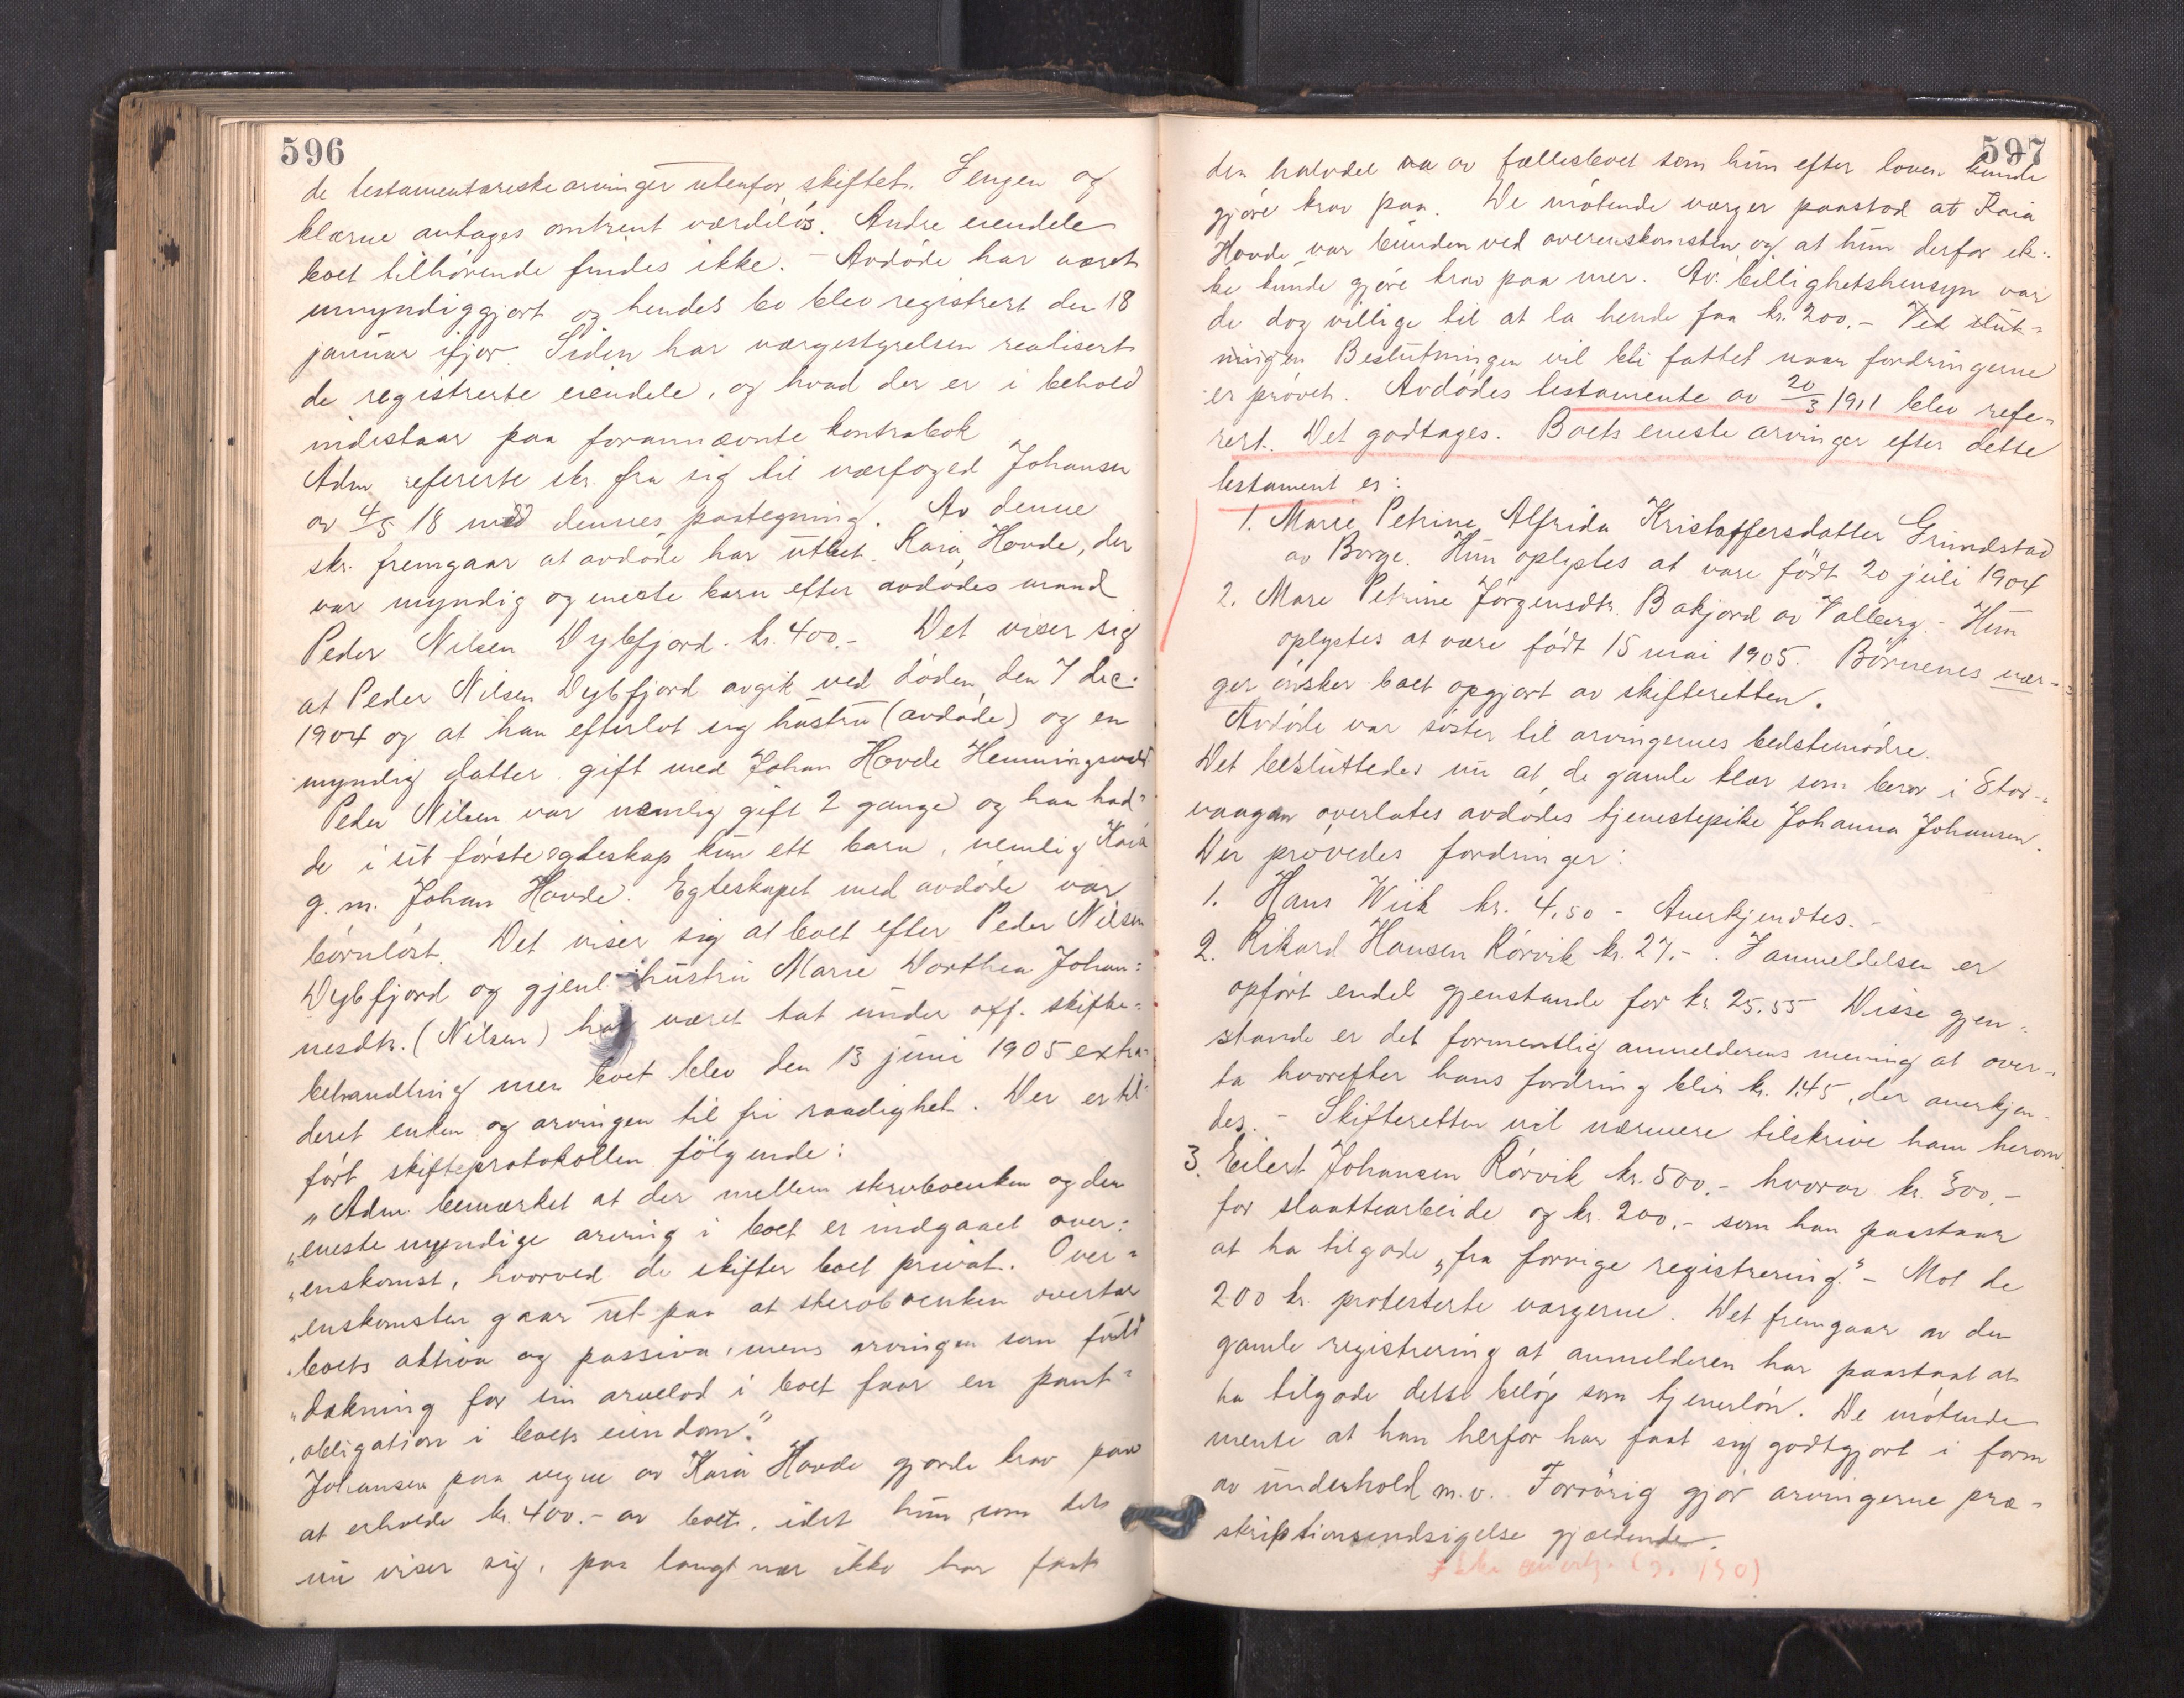 596
de testamentariske arvinger utenfor skiftet. Sengen og
klærne antages omtrent værdiløs. Andre eiendele
boet tilhørende findes ikke. – Avdøde har været
umyndiggjort og hendes bo blev registrert den 18
januar ifjor. Siden har værgestyrelsen realisert
de registrerte eiendele, og hvad der er i behold
indestaar paa forannævnte kontrabok
Adm refererte skr. fra sig til værfoged Johansen
av 4/5 18 med dennes paategning. Av denne
skr. fremgaar at avdøde har utbet. Kaia Hovde, der
var myndig og eneste barn efter avdødes mand
Peder Nilsen Dybfjord. kr. 400.- Det viser sig
at Peder Nilsen Dybfjord avgik ved døden den 7 dec.
1904 og at han efterlot sig hustru (avdøde) og en
myndig datter gift med Johan Hovde Henningsvær
Peder Nilsen var nemlig gift 2 gange og han had-
de i sit første egteskap kun ett barn, nemlig Kaia
g. m. Johan Hovde. Egteskapet med avdøde var
børnløst. Det viser sig at boet efter Peder Nilsen
Dybfjord og gjenl. hustru Marie Dorthea Johan-
nesdtr. (Nilsen) har været tat under off. skifte-
behandling men boet blev den 13 juni 1905 extra-
deret enken og arvingen til fri raadighet. Der er til-
ført skifteprotokollen følgende:
„Adm bemærket at der mellem skrøboenken og den
„eneste myndige arving i boet er indgaaet over-
„enskomst, hvorved de skifter boet privat. Over-
„enskomsten gaar ut paa at sterboenken overtar
„boets aktiva og passiva, mens arvingen som fuld
„dækning for sin arvelod i boet faar en pant-
„obligation i boets eiendom.“
Johansen paa vegne av Kaia Hovde gjorde krav paa
at erholde kr. 400.- av boet, idet hun, som det
nu viser sig, paa langt nær ikke har faat
597
den halvdel va av fællesboet som hun efter loven kunde
gjøre krav paa. De møtende værger paastod at Kaia
Hovde var bunden ved overenskomsten og at hun derfor ik-
ke kunde gjøre krav paa mer. Av billighetshensyn var
de dog villige til at la hende faa kr. 200.- Ved slut-
ningen Beslutningen vil bli fattet naar fordringerne
er prøvet. Avdødes testamente av 20/3 1911 blev refe-
rert. Det godtages. Boets eneste arvinger efter dette
testament er:
1. Marie Petrine Alfrida Kristoffersdatter Grundstad
av Borge. Hun oplystes at være født 20 juli 1904
2. Mare Petrine Jørgensdtr. Bakjord av Valberg. – Hun
oplystes at være født 15 mai 1905. Børnenes vær-
ger ønsker boet opgjort av skifteretten.
Avdøde var søster til arvingernes bedstemødre.
Det besluttedes nu at de gamle klær som beror i Stor-
vaagan overlates avdødes tjenestepike Johanna Johansen.
Der prøvedes fordringer:
1. Hans Wiik kr. 4,50 - Anerkjendtes. –
2. Rikard Hansen Rørvik kr. 27.- . I anmeldelsen er
opført endel gjenstande for kr. 25,55 Disse gjen-
stande er det formentlig anmelderens mening at over-
ta hvorefter hans fordring blir kr. 1,45, der anerkjen-
des. – Skifteretten vil nærmere tilskrive ham herom.
3. Eilert Johansen Rørvik kr. 500.- hvorav kr. 300.-
for slaattearbeide og kr. 200.- som han paastaar
at ha tilgode „fra forrige registrering.“ – Mot de
200 kr. protesterte værgerne. Det fremgaar av den
gamle registrering at anmelderen har paastaat at
ha tilgode dette beløp som tjenerløn. De møtende
mente at han herfor har faat sig godtgjort i form
av underhold m.v. Forøvrig gjør arvingerne præ-
skriptionsindsigelse gjældende.